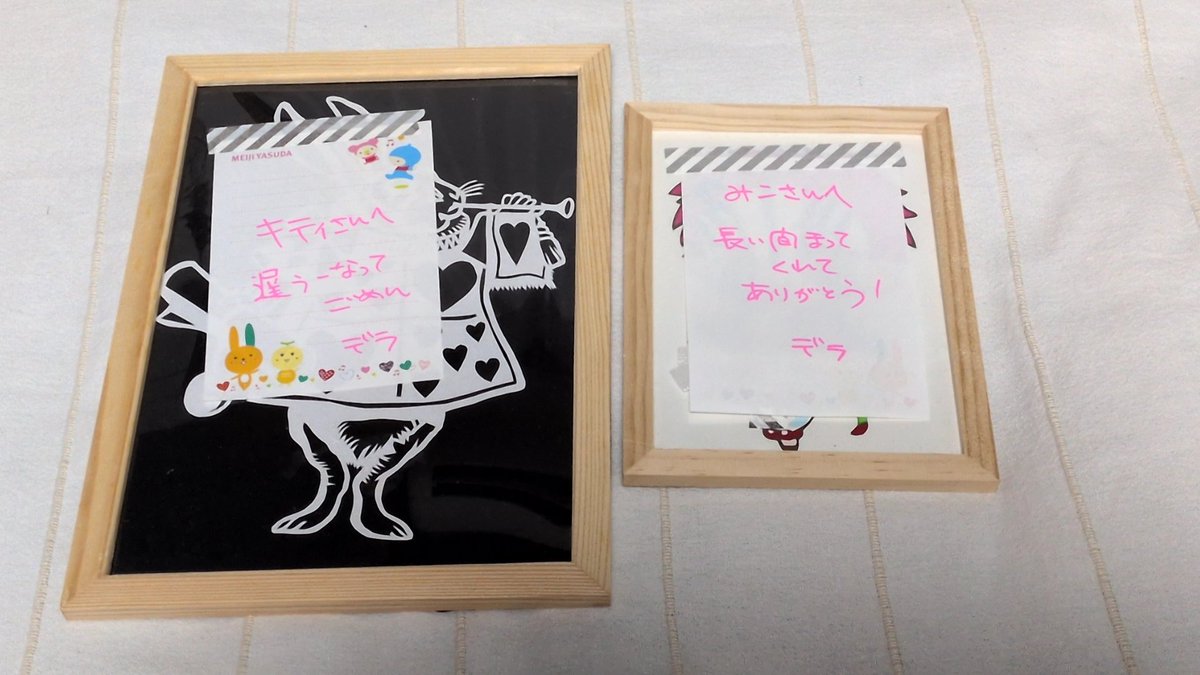 MEIJI YASUDA
キティさんへ
遅うーなって
ごめん
デラ
みこさんへ
長い間まって
くれて
ありがとう!
デラ